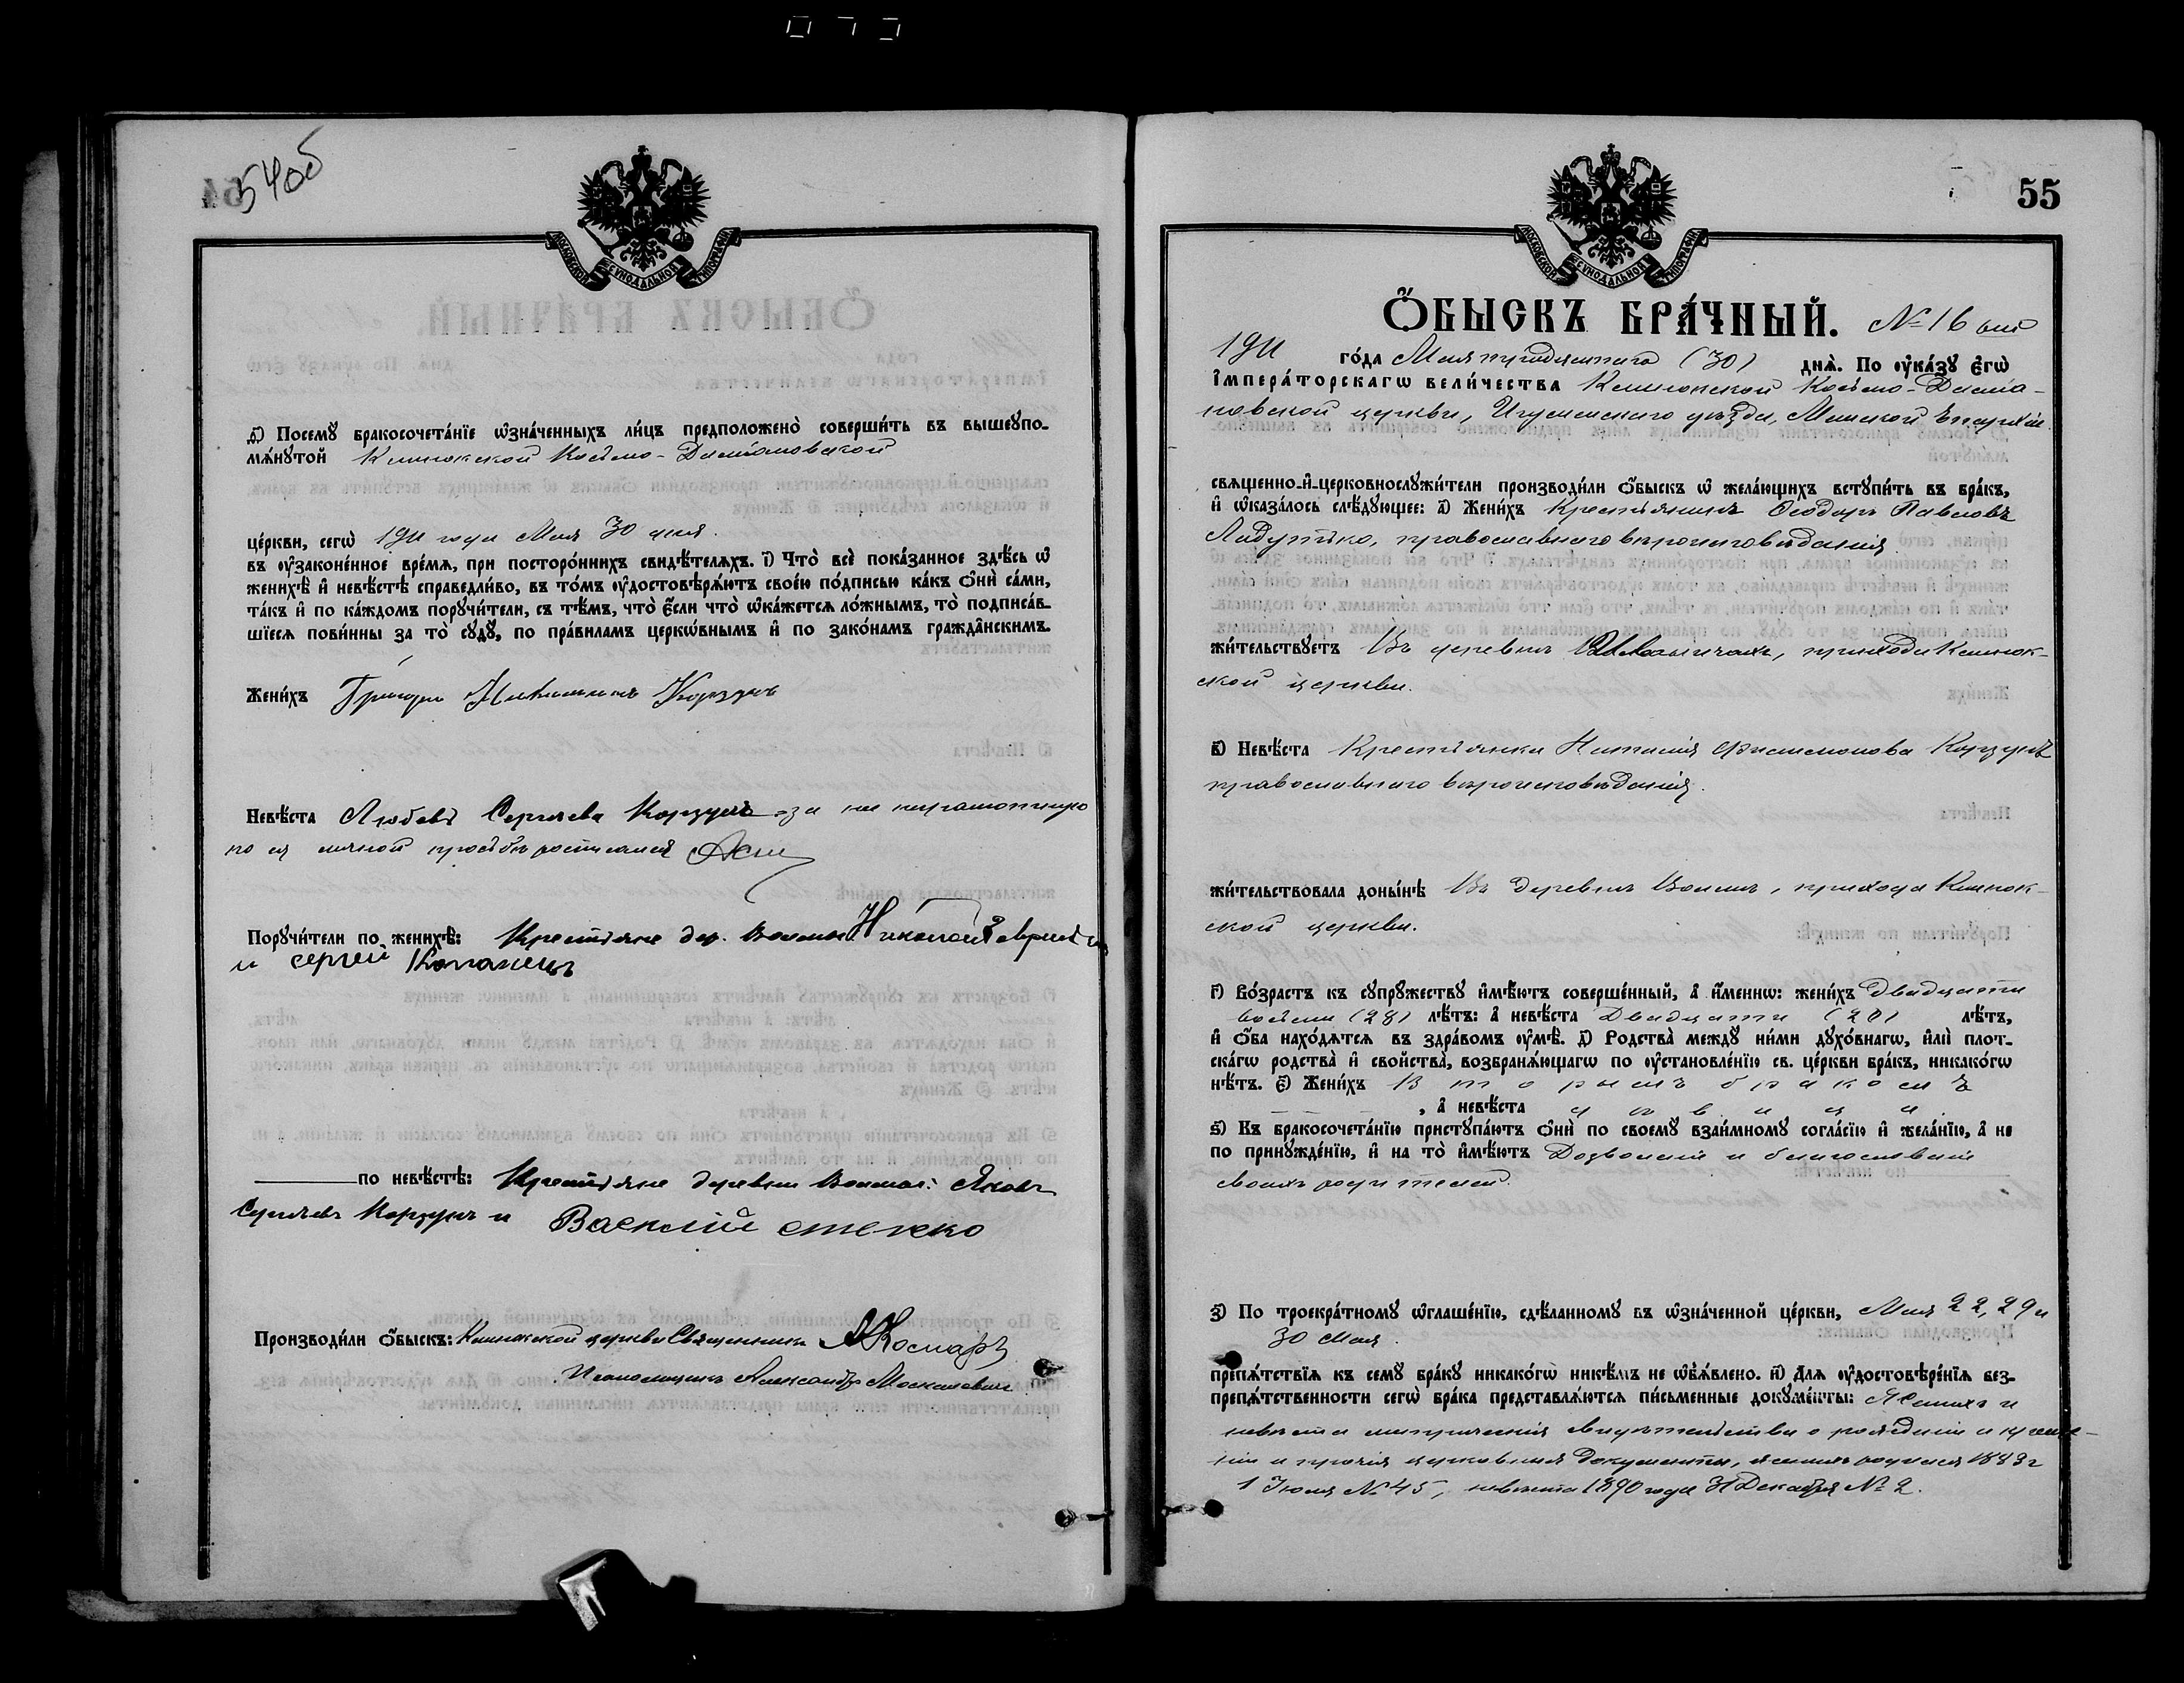 54об
МОСКОВСКОЙ СУНОДАЛЬНОЙ ТИПОГРАФІИ
Посемꙋ̀ бракосочета́нїе ѡ҆зна́ченныхъ ли́цъ предположено̀ соверши́ть въ вышеꙋпо-
мѧ́нꙋтой Косьмо-Даміановской
це́ркви, сегѡ̀ 1911 года Мая 30 дня.
въ ᲂу҆законе́нное вре́мѧ, при посторо́ннихъ свидѣ́телѧхъ. і҃) Что̀ всѐ пока́занное здѣ́сь ѡ҆
женихѣ̀ и҆ невѣ́стѣ справедли́во, въ то́мъ ᲂу҆достовѣрѧ́ютъ свое́ю по́дписью ка́къ ѻ҆нѝ са́ми,
та́къ и҆ по ка́ждомъ порꙋчи́тели, съ тѣ́мъ, что̀ є҆́сли что̀ ѡ҆ка́жетсѧ ло́жнымъ, то̀ подписа́в-
шїесѧ пови́нны за то̀ сꙋдꙋ̀, по пра́виламъ церкѡ́внымъ и҆ по зако́намъ гражда̑нскимъ.
Жени́хъ Григорій Корзунъ
Невѣ́ста Любовь Сергѣева Корзунъ за нее неграмотную
по ея личной просьбѣ росписался
Порꙋчи́тели по женихѣ̀: Крестьяне дер. Волмы Николай
и Сергей Копанецъ
по невѣ́стѣ: Крестьяне деревни Волмы: Яковъ
Сергѣевъ Корзунъ и Василій
Производи́ли ѻ҆́быскъ: церкви Священникъ
Псаломщикъ Александръ Москалевичъ
55
МОСКОВСКОЙ СУНОДАЛЬНОЙ ТИПОГРАФІИ
Ѻ҆́БЫСКЪ БРА́ЧНЫЙ. № 16
1911 го́да Мая тридцатаго (30) днѧ̀. По ᲂу҆ка́зꙋ є҆гѡ̀
і҆мпера́торскагѡ вели́чества Косьмо-Даміа-
новской церкви, Игуменскаго уѣзда, Минской Епархіи
свѧщенно-и҆-церковнослꙋжи́тели производи́ли ѻ҆́быскъ ѡ҆ жела́ющихъ встꙋпи́ть въ бра́къ,
и҆ ѡ҆каза́лось слѣ́дꙋющее: а҃) Жени́хъ Крестьянинъ Ѳеодоръ Павловъ
Ладутько, православнаго вѣроисповѣданія.
жи́тельствꙋетъ Въ деревнѣ прихода
ской церкви.
в҃) Невѣ́ста Крестьянка Наталія Филимонова Корзунъ
православнаго вѣроисповѣданія.
жи́тельствовала доны́нѣ Въ деревнѣ Волмѣ, прихода
ской церкви.
г҃) Во́зрастъ къ сꙋпрꙋ́жествꙋ и҆мѣ́ютъ соверше́нный, а҆ и҆́меннѡ: жени́хъ двадцати
восьми (28) лѣ́тъ: а҆ невѣ́ста Двадцати (20) лѣ́тъ,
и҆ ѻ҆́ба нахо́дѧтсѧ въ здра́вомъ ᲂу҆мѣ̀. д҃) Родства̀ междꙋ ни́ми дꙋхо́внагѡ, и҆лѝ плот-
ска́гѡ родства̀ и҆ сво́йства, возбранѧ́ющагѡ по ᲂу҆становле́нїю св. це́ркви бра́къ, никако́гѡ
нѣ́тъ. є҃) Жени́хъ вторымъ бракомъ
, а҆ невѣ́ста дѣвица
ѕ҃) Къ бракосочета́нїю пристꙋпа́ютъ ѻ҆нѝ по своемꙋ̀ взаи́мномꙋ согла́сїю и҆ жела́нїю, а҆ не
по принꙋжде́нїю, и҆ на то̀ и҆мѣ́ютъ Дозволеніе и благословеніе
своихъ родителей.
з҃) По троекра́тномꙋ ѡ҆глаше́нїю, сдѣ́ланномꙋ въ ѡ҆зна́ченной це́ркви, Мая 22, 29 и
30 Мая.
препѧ́тствїѧ къ семꙋ̀ бра́кꙋ никако́гѡ никѣ́мъ не ѡ҆б̾ѧ́влено. и҃) Длѧ ᲂу҆достовѣре́нїѧ без-
препѧ́тственности сегѡ̀ бра́ка представлѧ́ютсѧ пи́сьменные докꙋме́нты: Женихъ и
невѣста метрическія свидѣтельства о рожденіи и креще-
ніи и прочія церковныя документы, женихъ родился 1883 г
1 Іюля № 45, невѣста 1890 года 31 Декабря № 2.